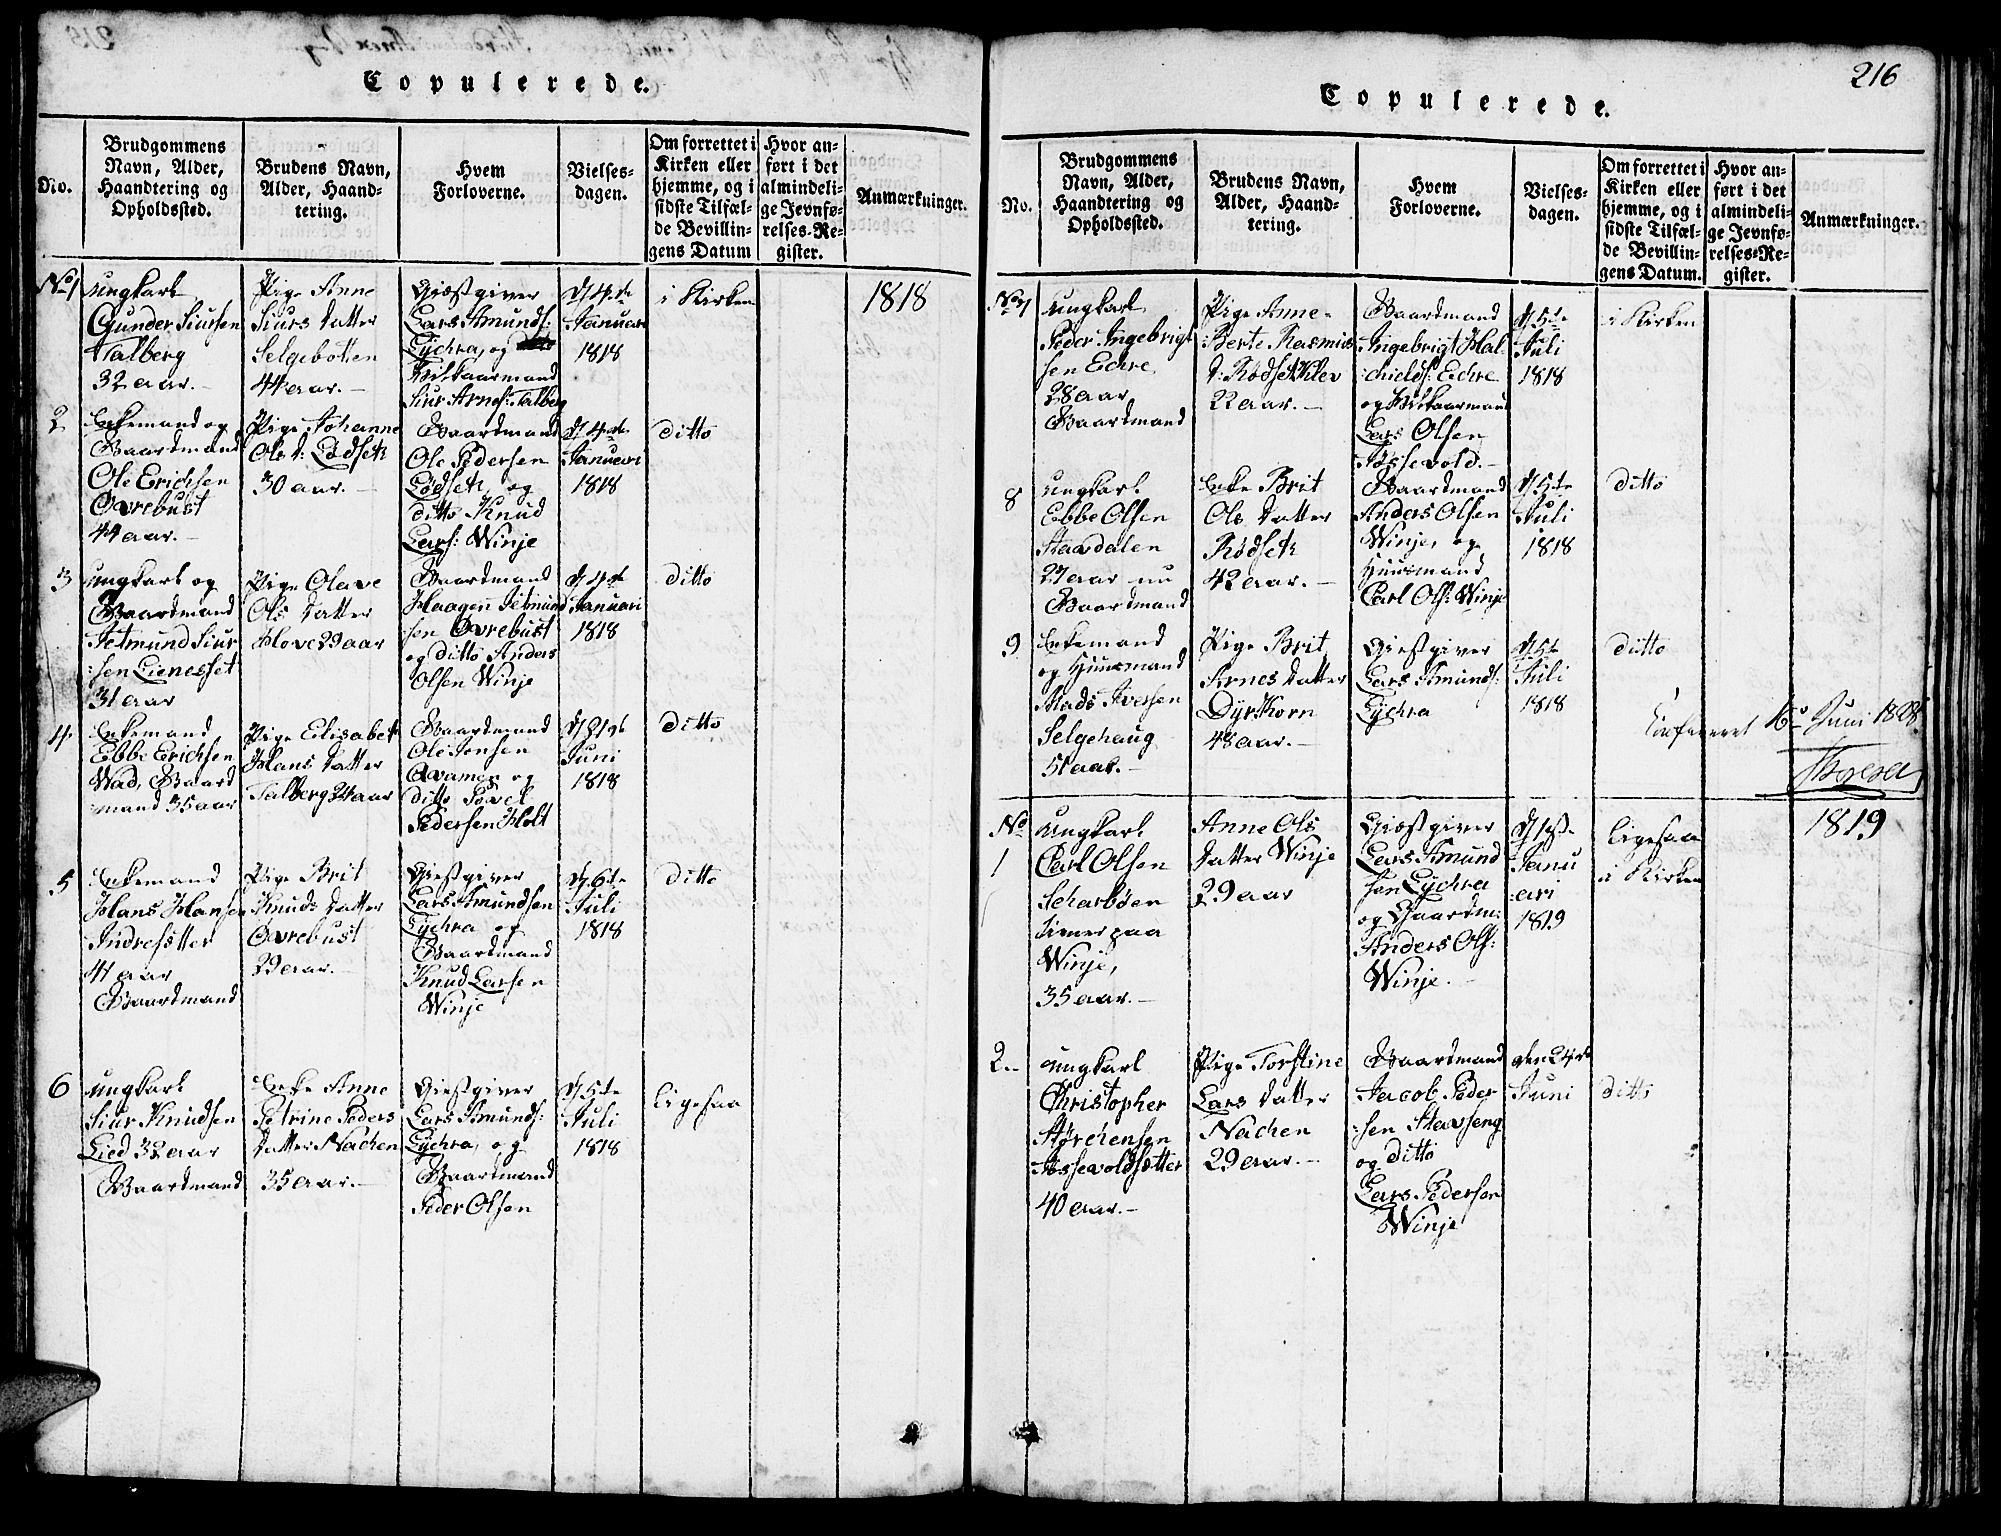 Copulerede.
No.
Brudgommens
Navn, Alder,
Haandtering og
Opholdssted.
Brudens Navn,
Alder, Haand-
tering.
Hvem
Forloverne.
Vielses-
dagen.
Om forrettet i
Kirken eller
hjemme, og i
sidste Tilfæl-
de Bevillin-
gens Datum
Hvor an-
ført i det
almindeli-
ge Jevnfø-
relses-Re-
gister.
Anmærkninger.
No 1
Ungkarl
Gunder Siursen
Talberg
32 aar.-
Pige Anne
Siurs datter
Selgebotten
44 aar.-
Giæstgiver
Lars Amunds:
Eychra, og
Vilkaarmand
Siur Arnes: Talberg
D 4de
Januari
1818
i Kirken
1818
2
Enkemand og
Gaardmand
Ole Erichsen
Øvrebust
44 aar.-
Pige Johanne
Ols d: Lødseth
30 aar.-
Gaardmand
Ole Pedersen
Lødseth, og
ditto Knud
Lars: Winje
D 4de
Januari
1818
ditto
3
Ungkarl og
Gaardmand
Jetmund Siur
:sen Lienesset
31 aar
Pige Olave
Ols datter
Hove 29 aar
Gaardmand
Haagen Jetmund
:sen Øvrebust
og ditto Anders
Olsen Winje
D 4de
Januari
1818
ditto
4
Enkemand
Ebbe Erichsen
Wad, Gaard
:mand 35 aar
Pige Elisabeth
Hans datter
Talberg 24 aar
Gaardmand
Ole Jensen
Qvamen og
ditto Povel
Pedersen Holt
D 21de
Juni
1818
ditto
5
Enkemand
Hans Hansen
Indresætter
41 aar
Gaardmand
Pige Brit
Knuds datter
Øvrebust
29 aar.-
Giestgiver
Lars Amundsen
Eychra og
Gaardmand
Knud Larsen
Winje
D 6te
Juli
1818
ditto
6
Ungkarl
Siur Knudsen
Lied 32 aar
Gaardmand
Enke Anne
Petrine Peders
datter Nachen
35 aar.-
Giestgiver
Lars Amunds:
Eychra, og
Gaardmand
Peder Olsen
D 5te
Juli
1818
ligesaa
216
Copulerede.
No.
Brudgommens
Navn, Alder,
Haandtering og
Opholdssted.
Brudens Navn,
Alder, Haand-
tering.
Hvem
Forloverne.
Vielses-
dagen.
Om forrettet i
Kirken eller
hjemme, og i
sidste Tilfæl-
de Bevillin-
gens Datum.
Hvor an-
ført i det
almindeli-
ge Jevnfø-
relses-Re-
gister.
Anmærkninger.
No 7
Ungkarl
Peder Ingebrigt
sen Echre
28 aar
Gaardmand
Pige Anne-
Berte Rasmus
d: Rødset Klev
22 aar.-
Gaardmand
Ingebrigt Hal
:chields: Echre
og Vilkaarmand
Lars Olsen
Aassevold.-
D 5te
Juli
1818
i Kirken
8
Ungkarl
Ebbe Olsen
Stavdalen
27 aar nu
Gaardmand
Enke Brit
Ols datter
Rødseth
42 aar.-
Gaardmand
Anders Olsen
Winje, og
Huusmand
Carl Ols: Winje
D 5te
Juli
1818
ditto
9
Enkemand
og Huusmand
Mads Iversen
Selgehaug
51 aar.-
Pige Brit
Arnes datter
Dyrkorn
48 aar.-
Giestgiver
Lars Amunds:
Eychra
D 5te
Juli
1818
ditto
Confereret 16de Juni 1828
No
1
Ungkarl
Carl Olsen
Scharbøen
tiener paa
Winje,
35 aar.-
Anne Ols
datter Winje
29 aar
Giæstgiver
Lars Amund
sen Eychra
og Gaardm:
Anders Ols:
Winje.-
D 1ste
Janu
:ari
1819
ligesaa
i Kirken
1819
2..
Ungkarl
Christopher
Størchersen
Aassevoldsætter
40 aar.-
Pige Torstine
Lars datter
Nachen
29 aar.-
Gaardmand
Jacob Peder
:sen Stavseng
og ditto
Lars Pedersen
Winje
den 24de
Juni
ditto